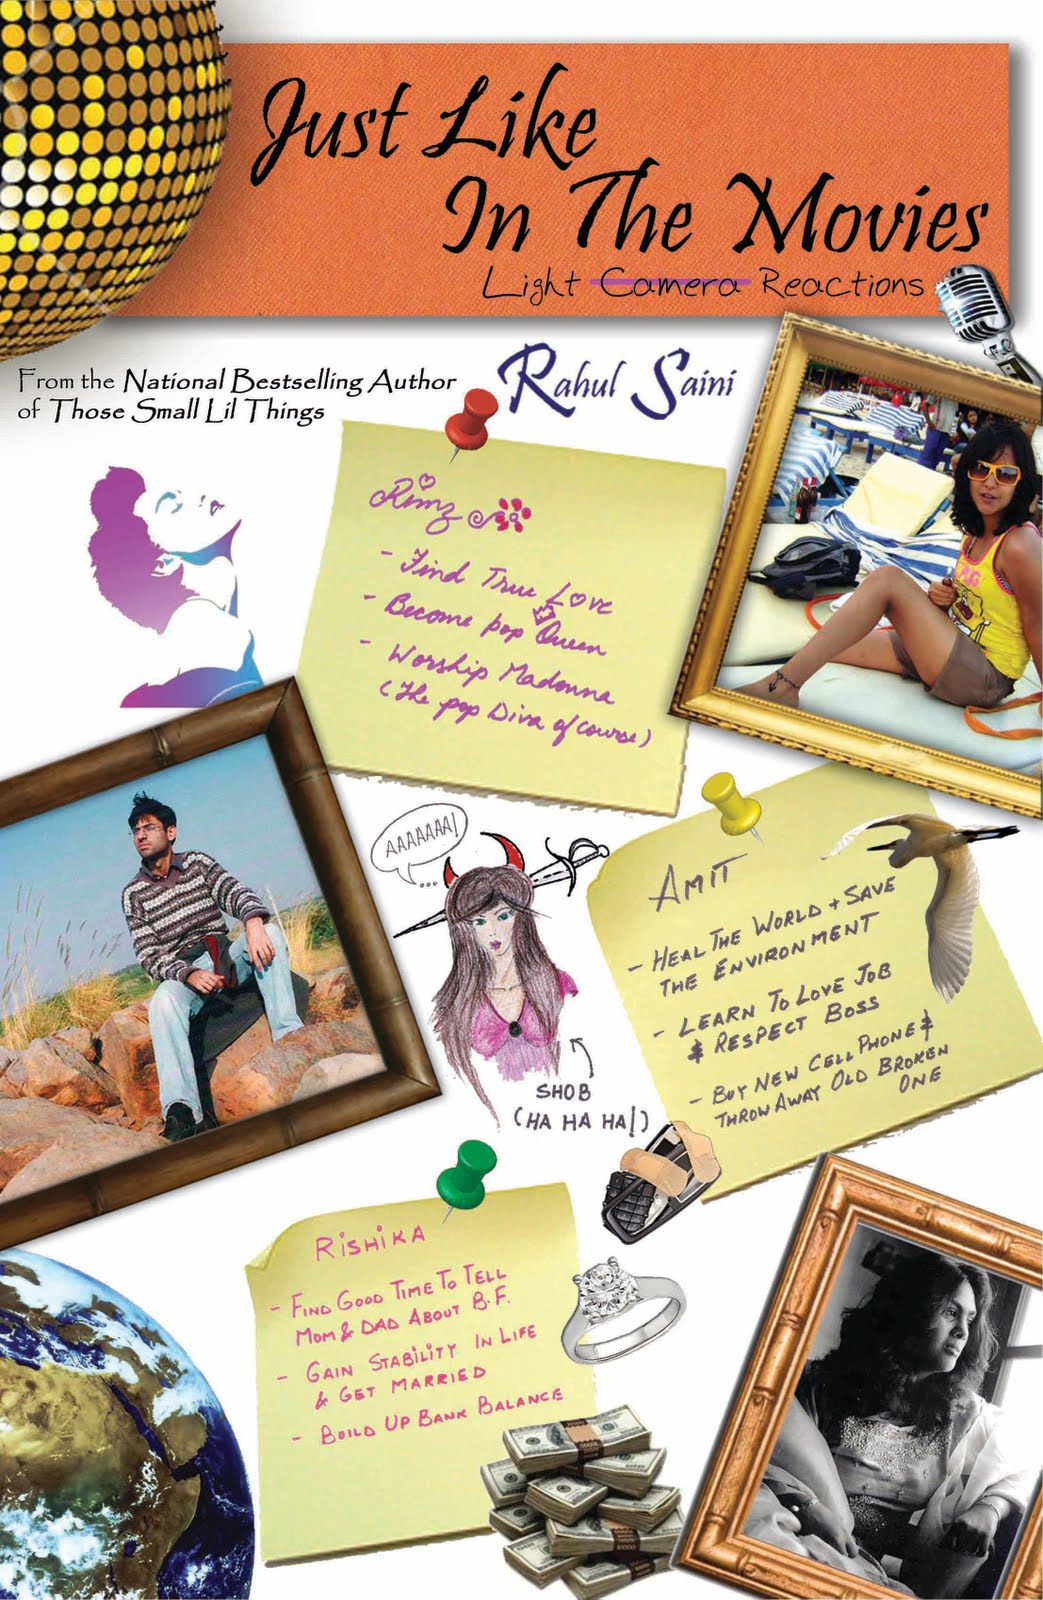 Just Like
In The Movies
Light Camera Reactions
From the National Bestselling Author
of Those Small Lil Things
Rahul Saini
Rimz
- Find True Love
- Become pop Queen
- Worship Madonna
(The pop Diva of course)
AAAAAAA!
AMIT
- HEAL THE WORLD + SAVE
THE ENVIRONMENT
- LEARN TO LOVE JOB
& RESPECT BOSS
- BUY NEW CELL PHONE &
THROW AWAY OLD BROKEN
ONE
SHOB
(HA HA HA!)
RISHIKA
- FIND GOOD TIME TO TELL
MOM & DAD ABOUT B.F.
- GAIN STABILITY IN LIFE
& GET MARRIED
- BUILD UP BANK BALANCE